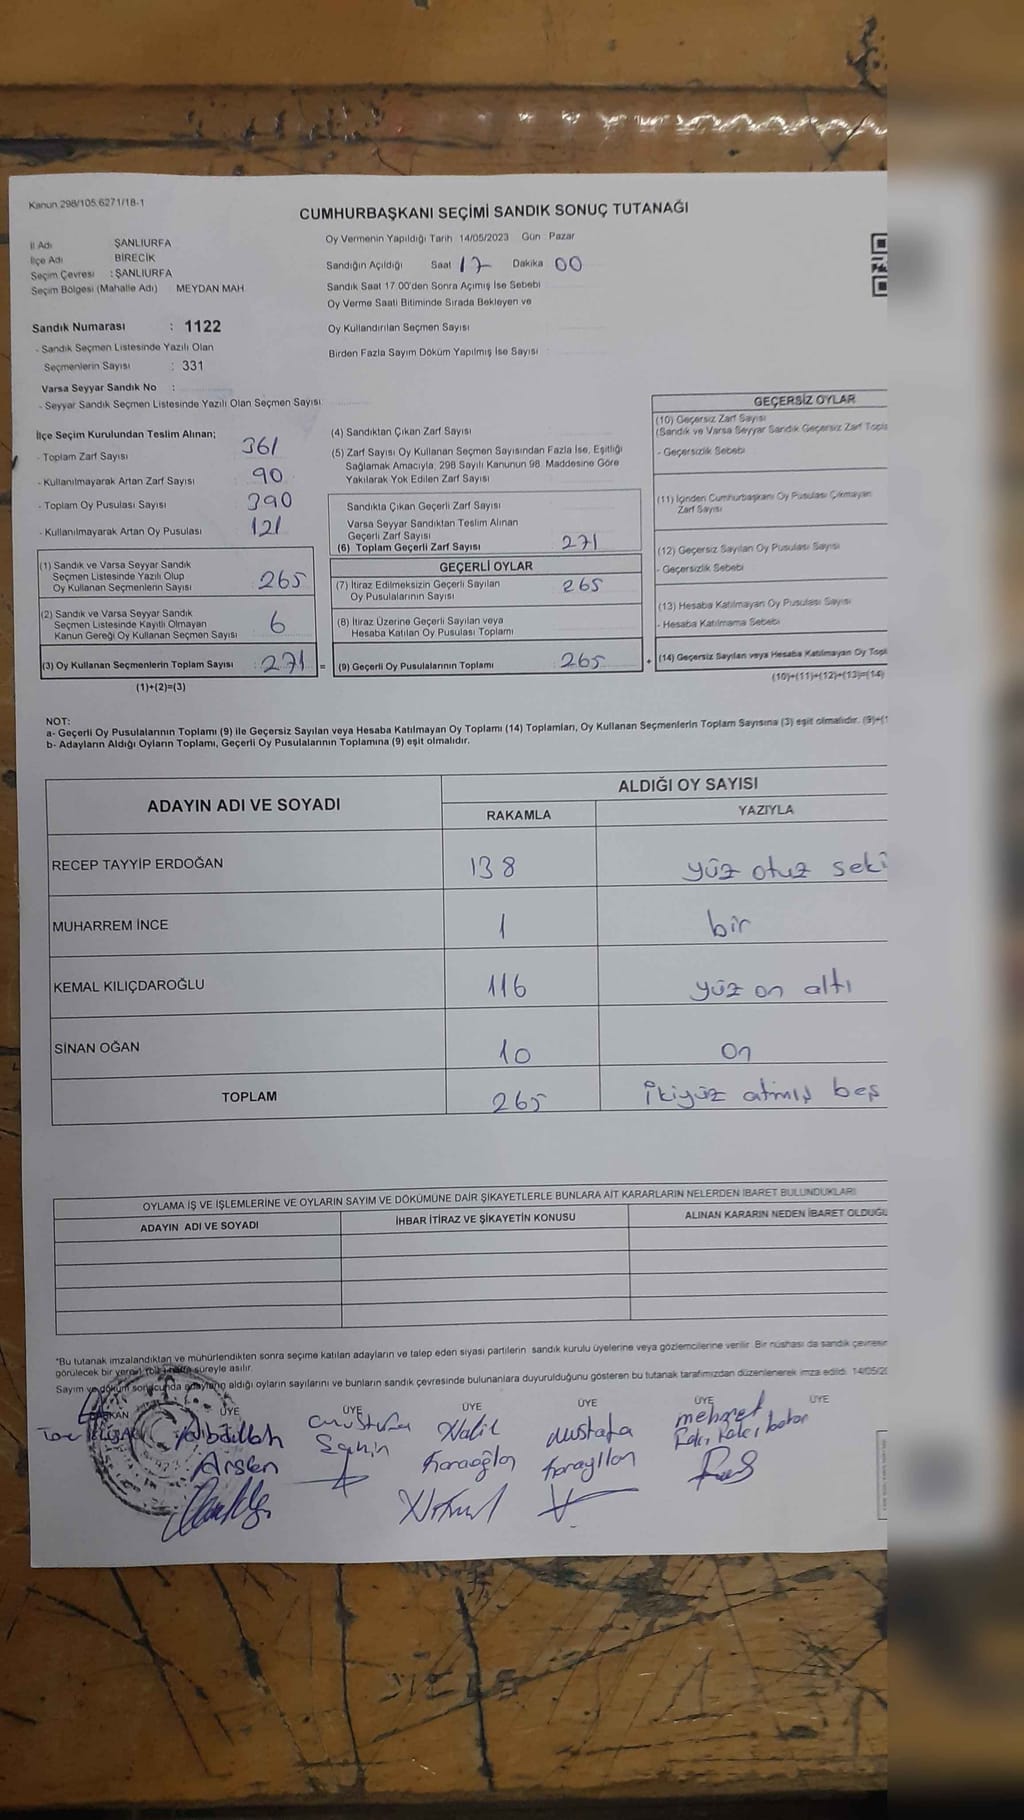 Kanun 298/105,6271/18-1
CUMHURBAŞKANI SEÇİMİ SANDIK SONUÇ TUTANAĞI
İl Adı ŞANLIURFA
İlçe Adı BİRECİK
Seçim Çevresi : ŞANLIURFA
Seçim Bölgesi (Mahalle Adı) MEYDAN MAH.
Oy Vermenin Yapıldığı Tarih 14/05/2023 Gün Pazar
Sandığın Açıldığı Saat 17 Dakika 00
Sandık Saat 17.00'den Sonra Açımış İse Sebebi
Oy Verme Saati Bitiminde Sırada Bekleyen ve
Oy Kullandırılan Seçmen Sayısı
Birden Fazla Sayım Döküm Yapılmış İse Sayısı
Sandık Numarası : 1122
- Sandık Seçmen Listesinde Yazılı Olan
Seçmenlerin Sayısı : 331
Varsa Seyyar Sandık No :
- Seyyar Sandık Seçmen Listesinde Yazılı Olan Seçmen Sayısı
İlçe Seçim Kurulundan Teslim Alınan;
- Toplam Zarf Sayısı 361
- Kullanılmayarak Artan Zarf Sayısı 90
- Toplam Oy Pusulası Sayısı 390
- Kullanılmayarak Artan Oy Pusulası 121
(1) Sandık ve Varsa Seyyar Sandık
Seçmen Listesinde Yazılı Olup
Oy Kullanan Seçmenlerin Sayısı 265
(2) Sandık ve Varsa Seyyar Sandık
Seçmen Listesinde Kayıtlı Olmayan
Kanun Gereği Oy Kullanan Seçmen Sayısı 6
(3) Oy Kullanan Seçmenlerin Toplam Sayısı : 271 =
(1)+(2)=(3)
(4) Sandıktan Çıkan Zarf Sayısı
(5) Zarf Sayısı Oy Kullanan Seçmen Sayısından Fazla İse, Eşitliği
Sağlamak Amacıyla, 298 Sayılı Kanunun 98. Maddesine Göre
Yakılarak Yok Edilen Zarf Sayısı
Sandıkta Çıkan Geçerli Zarf Sayısı
Varsa Seyyar Sandıktan Teslim Alınan
Geçerli Zarf Sayısı
(6) Toplam Geçerli Zarf Sayısı 271
GEÇERLİ OYLAR
(7) İtiraz Edilmeksizin Geçerli Sayılan
Oy Pusulalarının Sayısı 265
(8) İtiraz Üzerine Geçerli Sayılan veya
Hesaba Katılan Oy Pusulası Toplamı
(9) Geçerli Oy Pusulalarının Toplamı 265 +
GEÇERSİZ OYLAR
(10) Geçersiz Zarf Sayısı
(Sandık ve Varsa Seyyar Sandık Geçersiz Zarf
- Geçersizlik Sebebi
(11) İçinden Cumhurbaşkanı Oy Pusulası Çıkmayan
Zarf Sayısı
(12) Geçersiz Sayılan Oy Pusulası Sayısı
- Geçersizlik Sebebi
(13) Hesaba Katılmayan Oy Pusulası Sayısı
- Hesaba Katılmama Sebebi
(14) Geçersiz Sayılan veya Hesaba Katılmayan Oy
(10)+(11)+(12)+(13)=(14)
NOT:
a- Geçerli Oy Pusulalarının Toplamı (9) ile Geçersiz Sayılan veya Hesaba Katılmayan Oy Toplamı (14) Toplamları, Oy Kullanan Seçmenlerin Toplam Sayısına (3) eşit olmalıdır. (9)+(1
b- Adayların Aldığı Oyların Toplamı, Geçerli Oy Pusulalarının Toplamına (9) eşit olmalıdır.
ADAYIN ADI VE SOYADI ALDIĞI OY SAYISI
RAKAMLA YAZIYLA
RECEP TAYYİP ERDOĞAN 138 yüz otuz seki
MUHARREM İNCE 1 bir
KEMAL KILIÇDAROĞLU 116 yüz on altı
SİNAN OĞAN 10 on
TOPLAM 265 ikiyüz atmış beş
OYLAMA İŞ VE İŞLEMLERİNE VE OYLARIN SAYIM VE DÖKÜMÜNE DAİR ŞİKAYETLERLE BUNLARA AİT KARARLARIN NELERDEN İBARET BULUNDUKLARI
ADAYIN ADI VE SOYADI İHBAR İTİRAZ VE ŞİKAYETİN KONUSU ALINAN KARARIN NEDEN İBARET OLDUĞU
*Bu tutanak imzalandıktan ve mühürlendikten sonra seçime katılan adayların ve talep eden siyasi partilerin sandık kurulu üyelerine veya gözlemcilerine verilir. Bir nüshası da sandık
görülecek bir süreyle asılır.
Sayım ve döküm sonucunda aldığı oyların sayılarını ve bunların sandık çevresinde bulunanlara duyurulduğunu gösteren bu tutanak tarafımızdan düzenlenerek imza edildi. 14/05/20
BAŞKAN ÜYE ÜYE ÜYE ÜYE ÜYE ÜYE
Abdullah Mustafa Halil Mustafa mehmet
Arslan Şahin Karaoğlan Karayılan